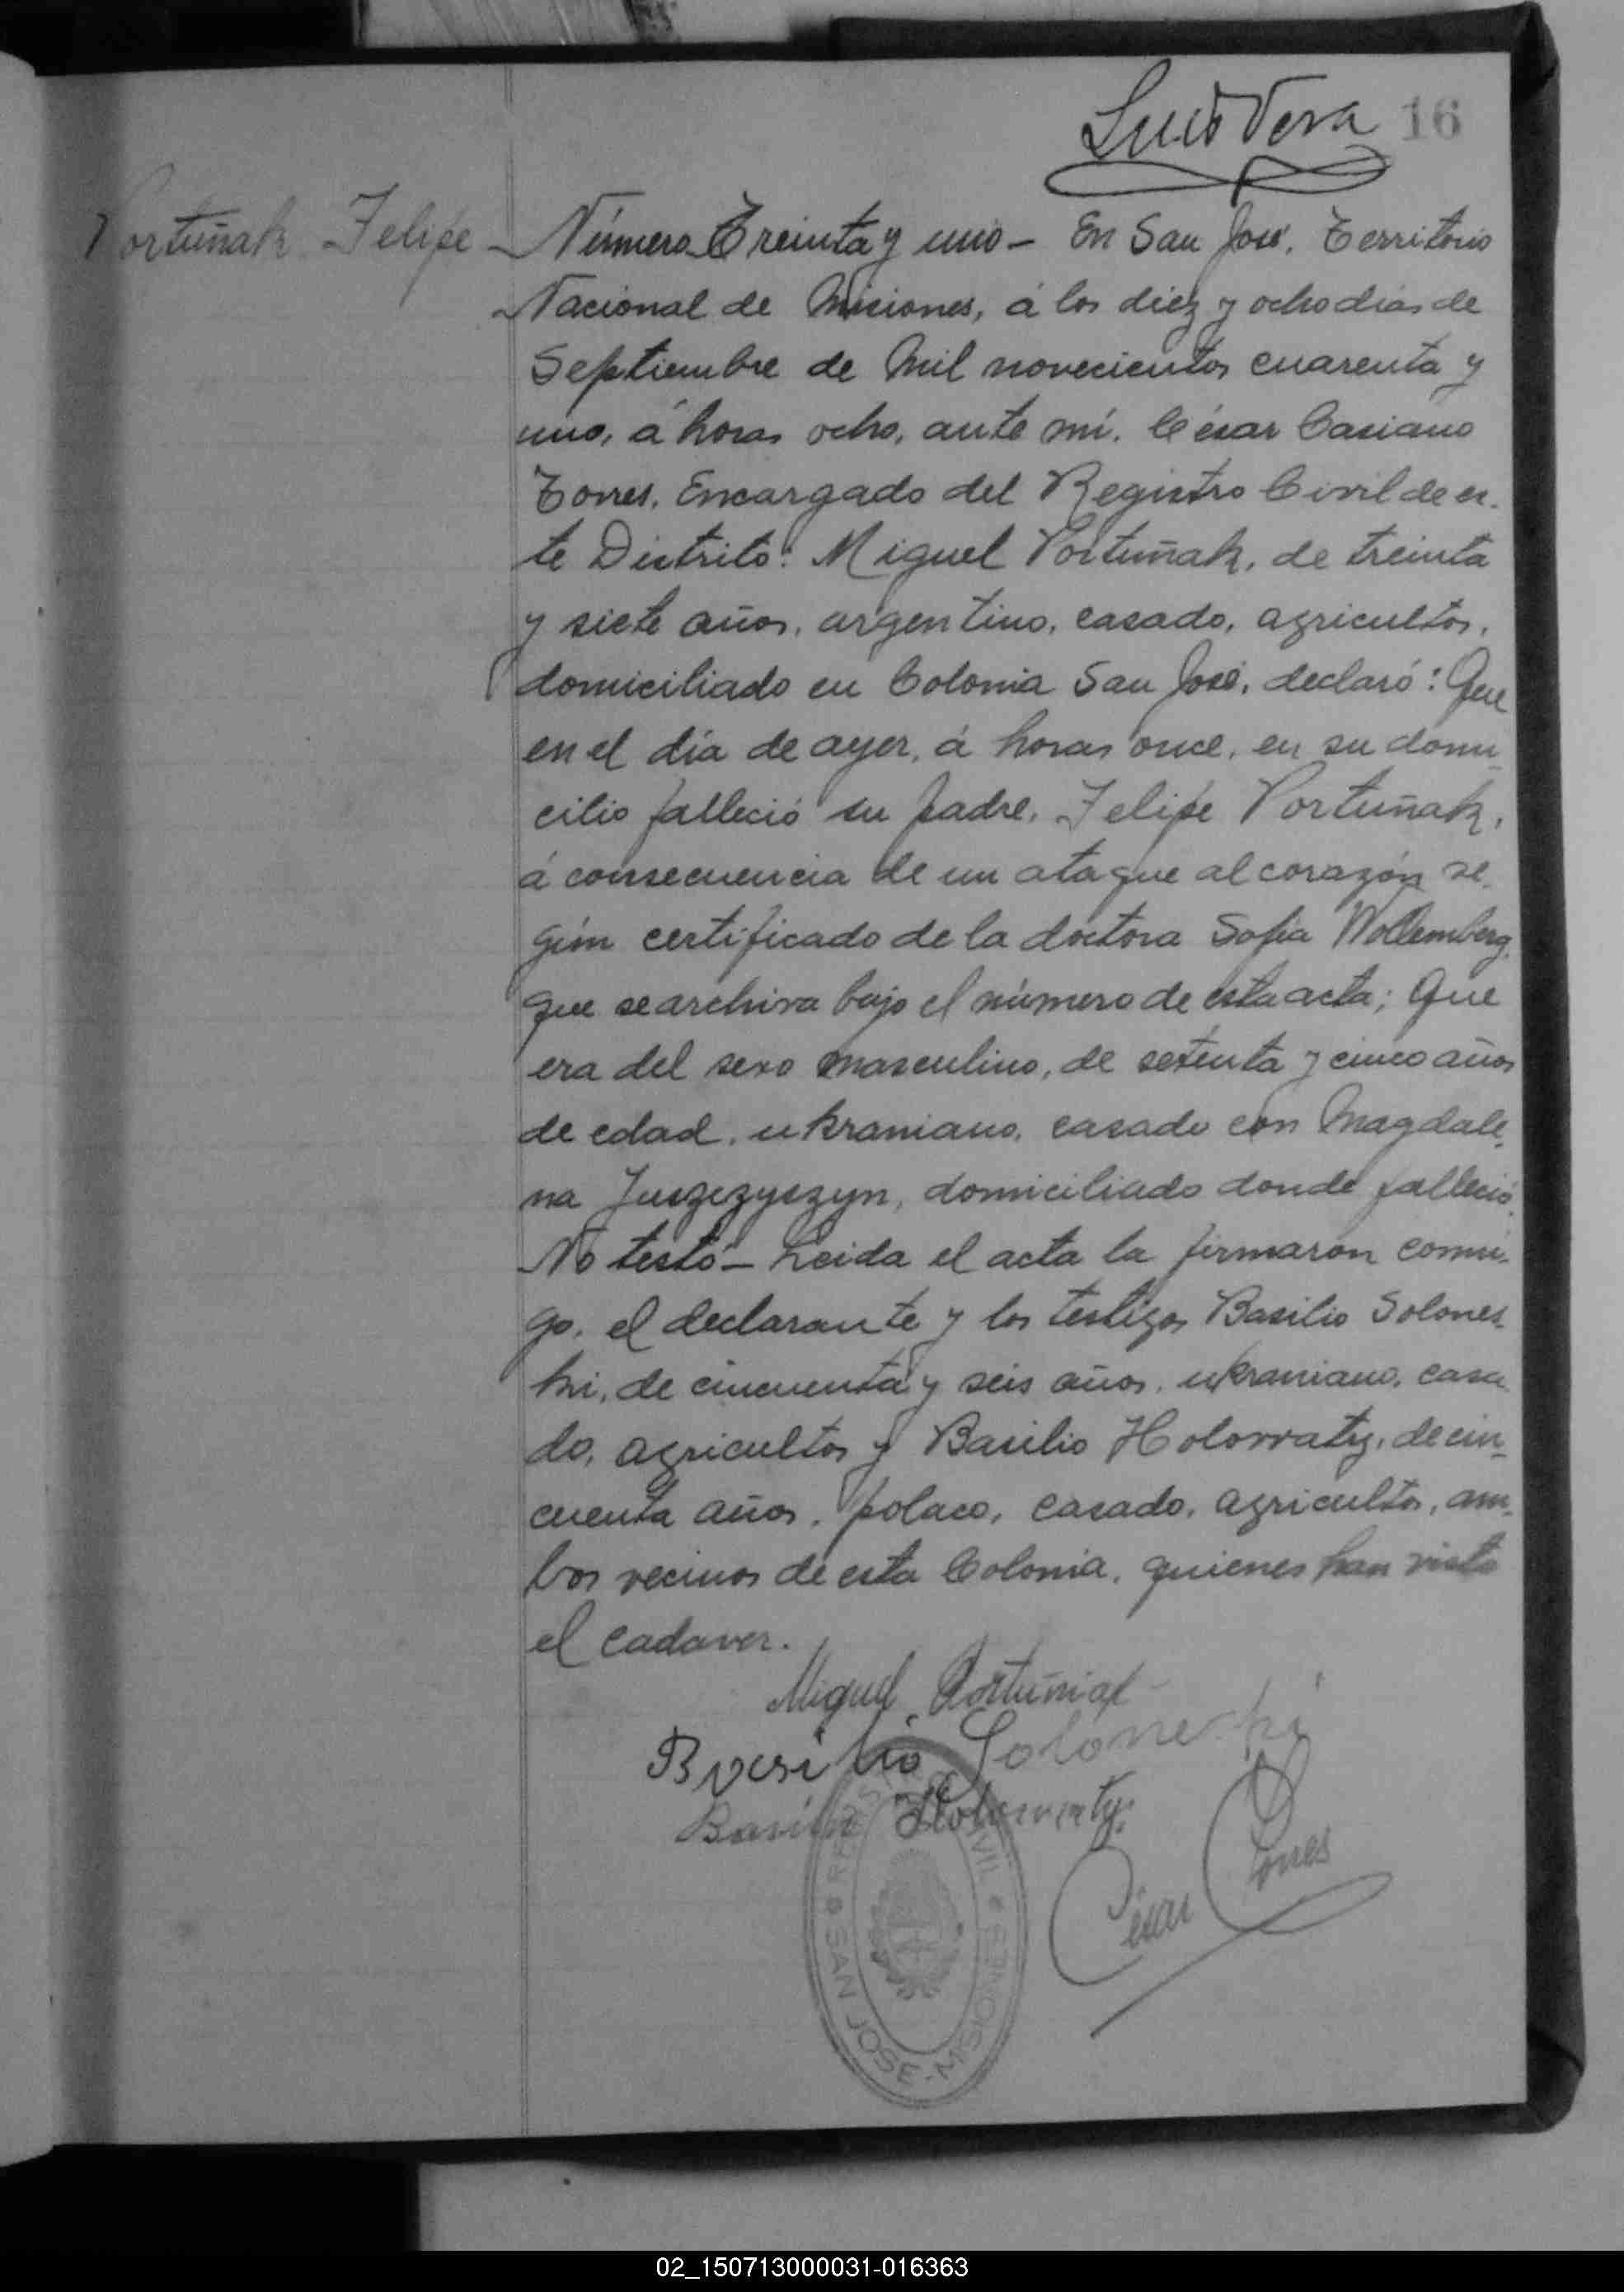 Luis Vera 16
Portuñak Felipe
Número Treinta y uno - En San José, Territorio
Nacional de Misiones, á los diez y ocho dias de
Septiembre de Mil novecientos cuarenta y
uno, á horas ocho, ante mí, César Casiano
Torres, Encargado del Registro Civil de es-
te Distrito: Miguel Portuñak, de treinta
y siete años, argentino, casado, agricultor,
domiciliado en Colonia San José, declaró: Que
en el día de ayer, á horas once, en su domi-
cilio falleció su padre, Felipe Portuñak,
á consecuencia de un ataque al corazón se-
gún certificado de la doctora Sofia Wollemberg,
que se archiva bajo el número de esta acta; Que
era del sexo masculino, de setenta y cinco años
de edad, ukraniano, casado con Magdale-
na Juszczyszyn, domiciliado donde falleció.
No testó - Leida el acta la firmaron conmi-
go, el declarante y los testigos Basilio Solones-
ki, de cincuenta y seis años, ukraniano, casa-
do, agricultor y Basilio Holowaty, de cin-
cuenta años, polaco, casado, agricultor, am-
bos vecinos de esta Colonia, quienes han visto
el cadaver.
Miguel Portuniak
Basilio Soloneski
Basilio Holowaty
César C Torres
REGISTRO CIVIL
SAN JOSE - MISIONES
02_150713000031-016363